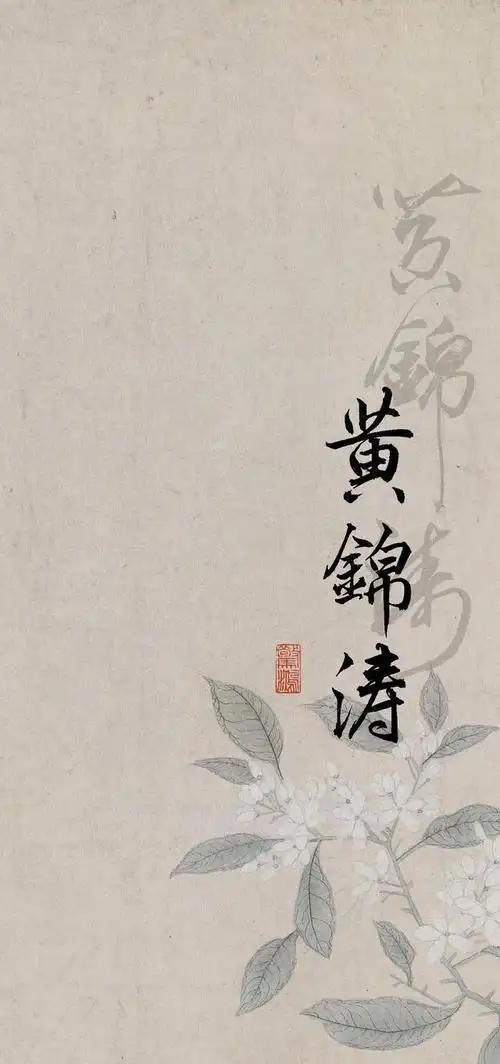 黄錦涛
黄錦涛